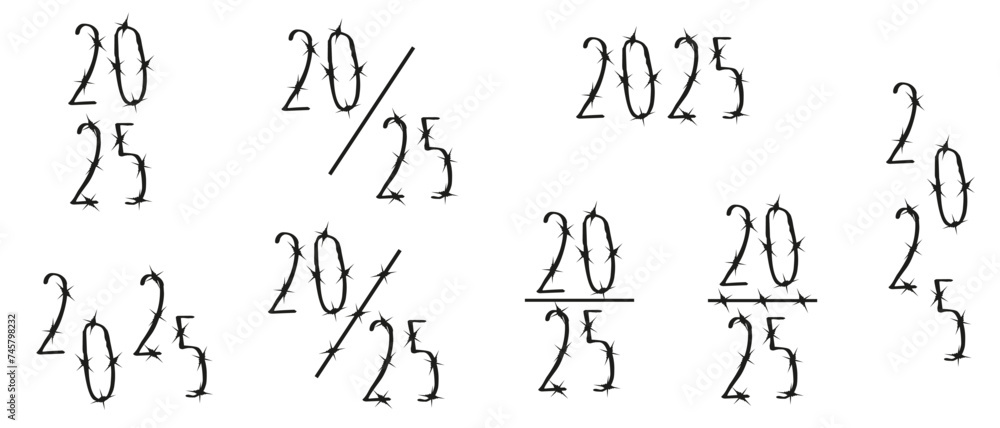 20
25
20/25
2025
2025
20/25
20
25
20
25
2025
Adobe Stock | #745798232